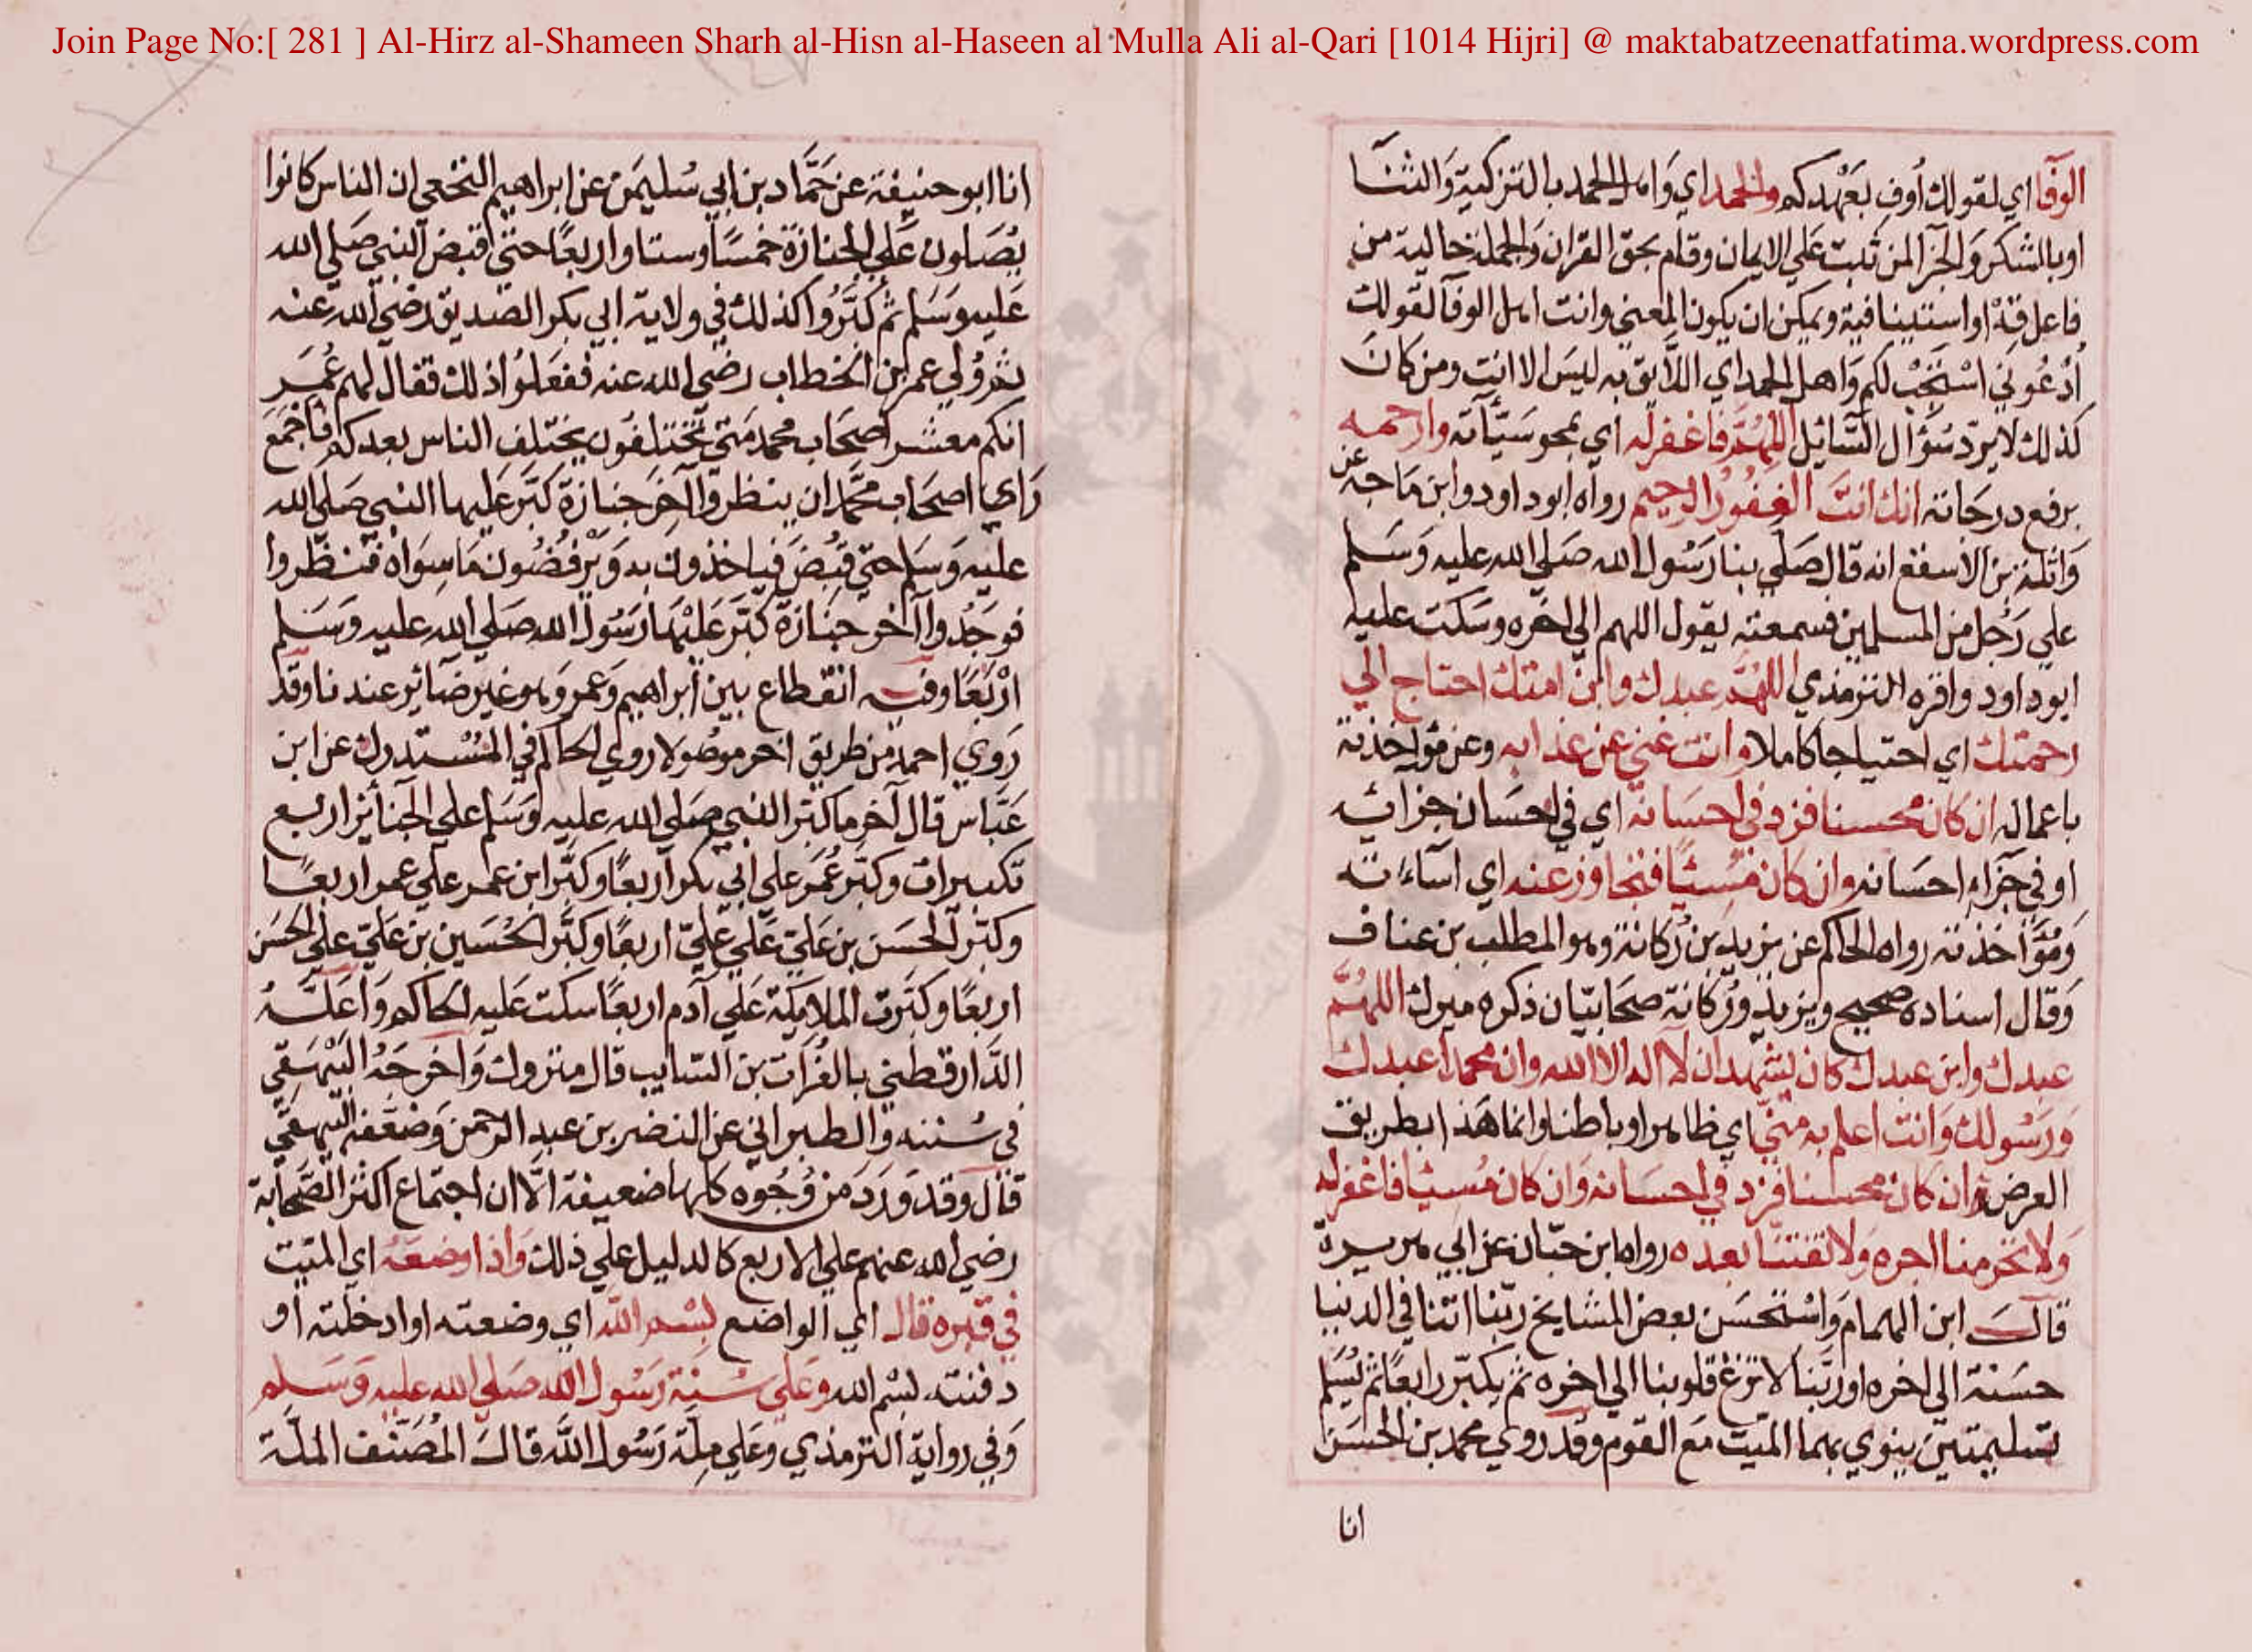 Join Page No:[ 281 ] Al-Hirz al-Shameen Sharh al-Hisn al-Haseen al Mulla Ali al-Qari [1014 Hijri] @ maktabatzeenatfatima.wordpress.com
الوفا اي لقولك أوف بعهدكم والحمد اي وامل الحمد بالتزكية والثنا
او بالشكر والجزا لمن ثبت علي الايمان وقام بحق القران والجملة خالية من
فاعل قه او استينافية ويمكن ان يكون المعني وانت اهل الوفا لقولك
أدعوني استجب لكم واهل الحمد اي اللايق به ليس الا انت ومن كان
كذلك لا يرد سؤال السائل اللهم فاغفر له اي بمحو سيآته وارحمه
برفع درجاته انك انت الغفور الرحيم رواه ابوداود وابن ماجه عن
واثلة بن الاسقع انه قال صلي بنا رسول الله صلي الله عليه وسلم
علي رجل من المسلمين فسمعته يقول اللهم الي اخره وسكت عليه
ابوداود واقره الترمذي اللهم عبدك وابن امتك احتاج الي
رحمتك اي احتياجا كاملا وانت غني عن عذابه وعن مؤاخذته
باعماله ان كان محسنا فزد في احسانه اي في احسان جزائه
او في جزاء احسانه وان كان مسيئا فتجاوز عنه اي اساءته
ومؤاخذته رواه الحاكم عن يزيد بن ركانة وهو المطلب بن عناف
وقال اسناده صحيح ويزيد وركانة صحابيان ذكره ميرك اللهم
عبدك وابن عبدك كان يشهد ان لا اله الا الله وان محمدا عبدك
ورسولك وانت اعلم به مني اي ظاهرا وباطنا وانما هذا بطريق
العرض ان كان محسنا فزد في احسانه وان كان مسيئا فاغفر له
ولا تحرمنا اجره ولا تفتنا بعده رواه ابن حبان عن ابي هريرة
قال ابن الهمام واستحسن بعض المشايخ ربنا اتنا في الدنيا
حسنة الي اخره او ربنا لا تزغ قلوبنا الي اخره ثم يكبر رابعا ثم يسلم
تسليمتين ينوي بهما الميت مع القوم وقد روي محمد بن الحسن
انا
انا ابو حنيفة عن حماد بن ابي سليمن عن ابراهيم النخعي ان الناس كانوا
يصلون علي الجنازة خمسا وستا واربعا حتي قبض النبي صلي الله
عليه وسلم ثم كبروا كذلك في ولاية ابي بكر الصديق رضي الله عنه
ثم ولي عمر بن الخطاب رضي الله عنه ففعلوا ذلك فقال لهم عمر
انكم معشر اصحاب محمد متي تختلفون يختلف الناس بعدكم فاجمع
راي اصحاب محمد ان ينظروا آخر جنازة كبر عليها النبي صلي الله
عليه وسلم حتي قبض فياخذون به ويرفضون ما سواه فنظروا
فوجدوا آخر جنازة كبر عليها رسول الله صلي الله عليه وسلم
اربعا وفيه انقطاع بين ابراهيم وعمر وهو غير ضائر عندنا وقد
روي احمد من طريق اخر موصولا روي الحاكم في المستدرك عن ابن
عباس قال آخر ما كبر النبي صلي الله عليه وسلم علي الجنائز اربع
تكبيرات وكبر عمر علي ابي بكر اربعا وكبر ابن عمر علي عمر اربعا
وكبر الحسن بن علي علي علي اربعا وكبر الحسين بن علي علي الحسن
اربعا وكبرت الملايكة علي آدم اربعا سكت عليه الحاكم واعله
الدارقطني بالفرات بن السايب قال متروك واخرجه البيهقي
في سننه والطبراني عن النضر بن عبد الرحمن وضعفه البيهقي
قال وقد ورد من وجوه كلها ضعيفة الا ان اجتماع اكثر الصحابة
رضي الله عنهم علي الاربع كالدليل علي ذلك واذا وضعه اي الميت
في قبره قال اي الواضع بسم الله اي وضعته او ادخلته او
دفنته بسم الله وعلي سنة رسول الله صلي الله عليه وسلم
وفي رواية الترمذي وعلي ملة رسول الله قال المصنف الملة